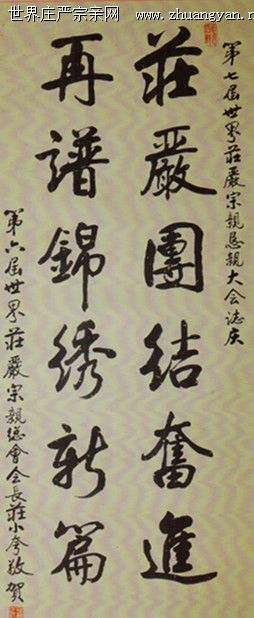 世界庄严宗亲网
www.zhuangyan.n
第七届世界莊嚴宗親恳親大会誌庆
莊嚴團结奮進
再譜錦绣新篇
第六届世界莊嚴宗親總會会長莊小夸敬賀